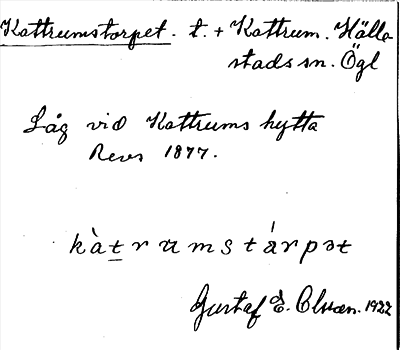 Kattrumstorpet. t. + Kattrum. Hälla-
stads sn. Ögl
Låg vid Kattrums hytta
Revs 1877.
kàt̲rumstárpət
Gustaf E. Olsson. 1922